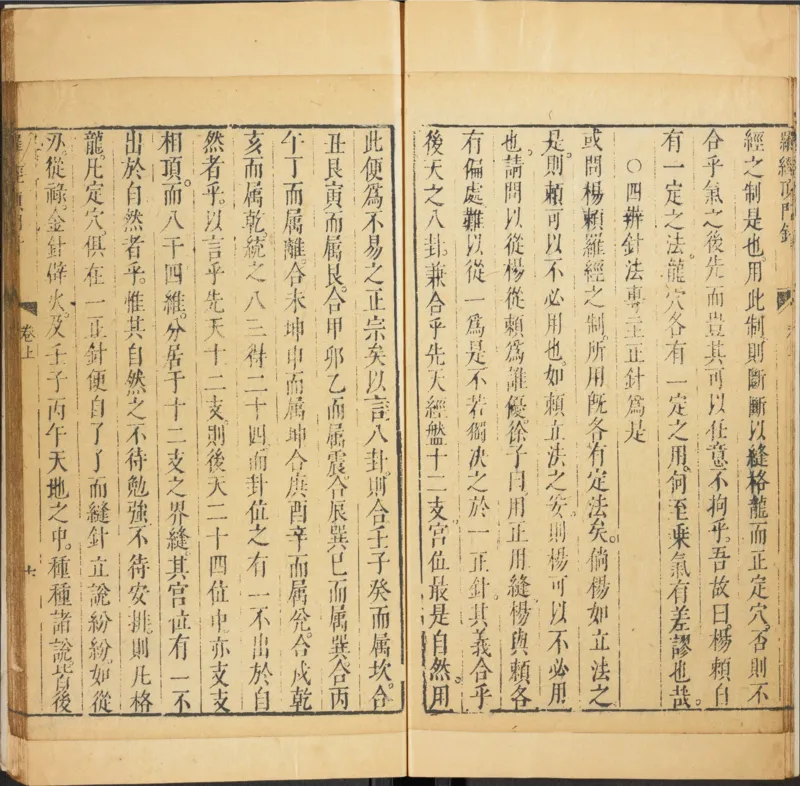 羅經頂門針
經之制是也用此制則斷斷以縫格龍而正定穴否則不
合乎氣之後先而豈其可以任意不拘乎吾故曰楊賴自
有一定之法龍穴各有一定之用何至乘氣有差謬也哉
○四辨針法專主正針爲是
或問楊賴羅經之制所用旣各有定法矣倘楊如立法之
是則賴可以不必用也如賴立法之安則楊可以不必用
也請問以從楊從賴爲誰優徐子曰用正用縫楊與賴各
有偏處難以從一爲是不若獨决之於一正針其義合乎
後天之八卦兼合乎先天經盤十二支宮位最是自然用
此便爲不易之正宗矣以言八卦則合壬子癸而属坎合
丑艮寅而属艮合甲卯乙而属震合辰巽巳而属巽合丙
午丁而属離合未坤申而属坤合庚酉辛而属兌合戌乾
亥而属乾統之八三得二十四而卦位之有一不出於自
然者乎以言乎先天十二支則後天二十四位中亦支支
相頂而八干四維分居于十二支之界縫其宮位有一不
出於自然者乎惟其自然之不待勉強不待安排則凡格
龍凡定穴俱在一正針便自了了而縫針立說紛紛如從
刅從祿金針僻火及壬子丙午天地之中種種諸說皆後
卷上
十